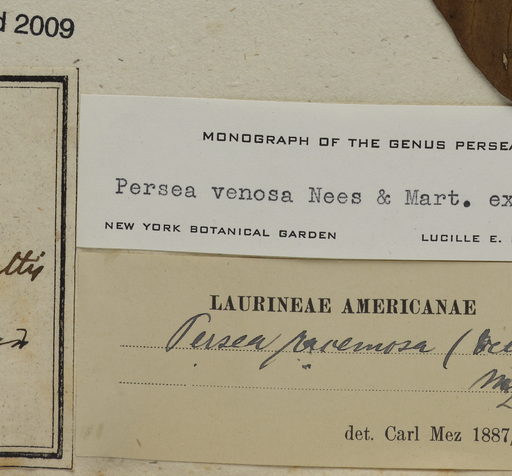 d 2009
MONOGRAPH OF THE GENUS PERSEA
Persea venosa Nees & Mart. ex
NEW YORK BOTANICAL GARDEN LUCILLE E.
LAURINEAE AMERICANAE
Persea racemosa (
Mez
det. Carl Mez 1887